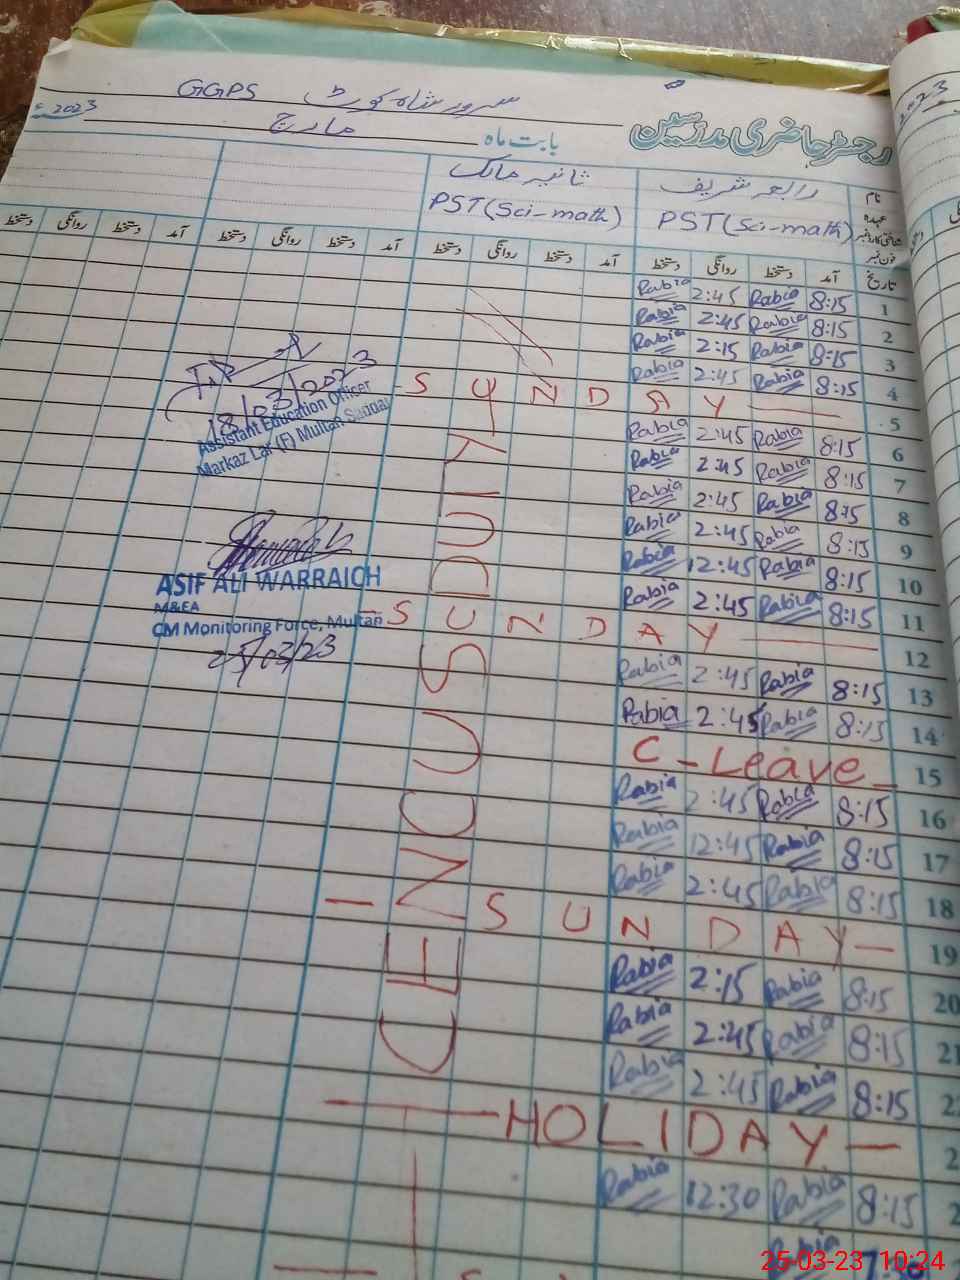 GGPS سرور شاہ کوٹ
رجسٹر حاضری مدرسین
بابت ماہ مارچ 2023ء
2023
نام رابعہ شریف ثانیہ مالک
عہدہ PST(Sci-math) PST(Sci-math)
شناختی کارڈ نمبر
فون نمبر
تاریخ آمد دستخط روانگی دستخط آمد دستخط روانگی دستخط آمد دستخط روانگی دستخط آمد دستخط روانگی دستخط
1 8:15 Rabia 2:45 Rabia
2 8:15 Rabia 2:45 Rabia
3 8:15 Rabia 2:15 Rabia
4 8:15 Rabia 2:45 Rabia
5 SUNDAY
6 8:15 Rabia 2:45 Rabia
7 8:15 Rabia 2:45 Rabia
8 8:15 Rabia 2:45 Rabia
9 8:15 Rabia 2:45 Rabia
10 8:15 Rabia 12:45 Rabia
11 8:15 Rabia 2:45 Rabia
12 SUNDAY
13 8:15 Rabia 2:45 Rabia
14 8:15 Rabia 2:45 Rabia
15 C-Leave
16 8:15 Rabia 2:45 Rabia
17 8:15 Rabia 12:45 Rabia
18 8:15 Rabia 2:45 Rabia
19 SUNDAY
20 8:15 Rabia 2:15 Rabia
21 8:15 Rabia 2:45 Rabia
22 8:15 Rabia 2:45 Rabia
HOLIDAY
8:15 Rabia 12:30 Rabia
Rabia
CENCUS DUTY
18/03/2023
Assistant Education Officer
Markaz Lar (F) Multan Saddar
ASIF ALI WARRAICH
M&EA
CM Monitoring Force, Multan
25/03/23
25-03-23 10:24